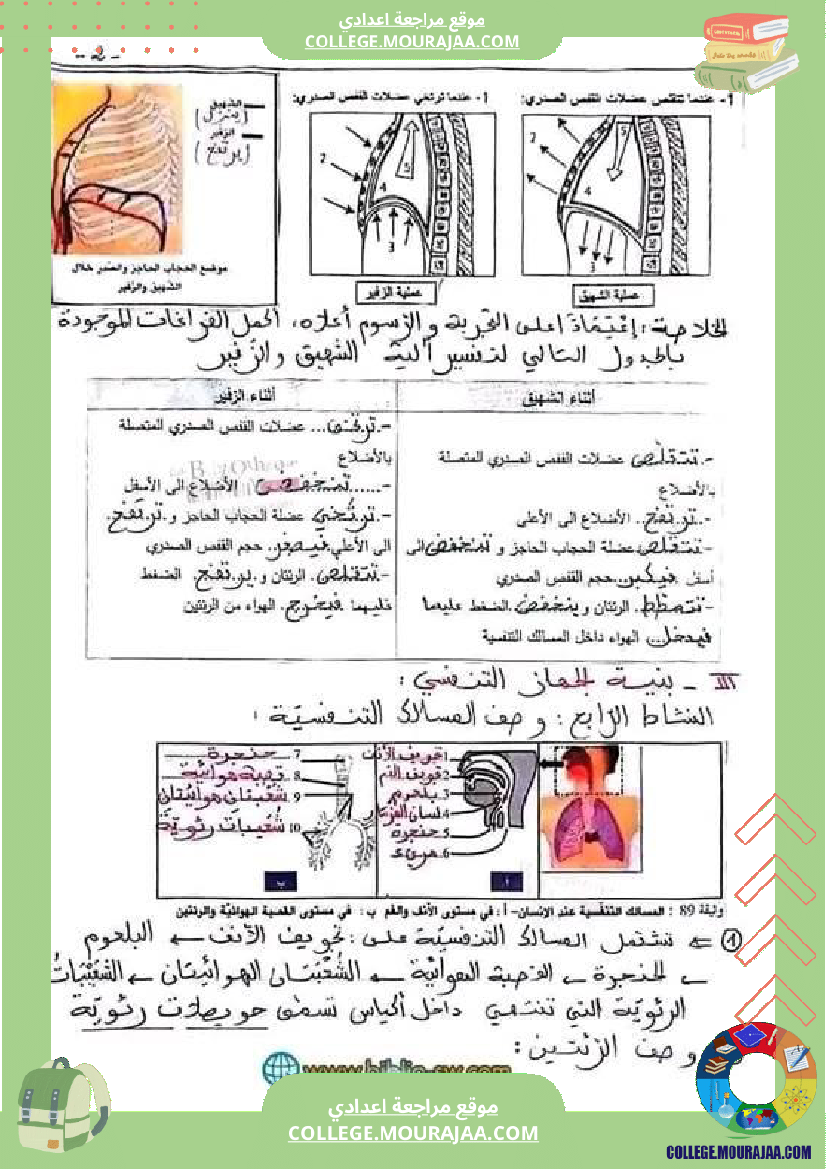 موقع مراجعة اعدادي
COLLEGE.MOURAJAA.COM
- 2 -
أ- عندما تتقلص عضلات القفص الصدري:
أ- عندما ترتخي عضلات القفص الصدري:
الشهيق
(ينزل)
الزفير
(يرتفع)
2
5
4
3
2
5
4
3
عملية الشهيق
عملية الزفير
موضع الحجاب الحاجز والصدر خلال
الشهيق والزفير
الخلاصة: إعتمادا على التجربة والرسوم أعلاه، أكمل الفراغات الموجودة
بالجدول التالي لتفسير آلية الشهيق والزفير
أثناء الشهيق
-.تتقلص عضلات القفص الصدري المتصلة
بالأضلاع
-..ترتفع.. الأضلاع الى الأعلى
-تتقلص عضلة الحجاب الحاجز و تنخفض الى
أسفل فيكبر حجم القفص الصدري
-تتمطط. الرئتان و ينخفض الضغط عليهما
فيدخل... الهواء داخل المسالك التنفسية
أثناء الزفير
-.ترتخي... عضلات القفص الصدري المتصلة
بالأضلاع
-......تنخفض الأضلاع الى الأسفل
-.ترتخي عضلة الحجاب الحاجز و ترتفع.
الى الأعلى فيصغر. حجم القفص الصدري
-تتقلص. الرئتان و يرتفع. الضغط
عليهما فيخرج. الهواء من الرئتين
III - بنية الجهاز التنفسي:
النشاط الرابع: وصف المسالك التنفسية:
1 تجويف الأنف
2 تجويف الفم
3 بلعوم
4 لسان المزمار
5 حنجرة
6 مريء
أ
7 حنجرة
8 قصبة هوائية
9 شعبتان هوائيتان
10 شعيبات رئوية
ب
وثيقة 89 : المسالك التنفسية عند الإنسان- أ: في مستوى الأنف والفم ب: في مستوى القصبة الهوائية والرئتين
① => تشتمل المسالك التنفسية على: تجويف الأنف ← البلعوم
← الحنجرة ← القصبة الهوائية ← الشعبتان الهوائيتان ← الشعيبات
الرئوية التي تنتهي داخل أكياس تسمى حويصلات رئوية
وصف الرئتين:
www.biblio-sw.com
موقع مراجعة اعدادي
COLLEGE.MOURAJAA.COM
COLLEGE.MOURAJAA.COM